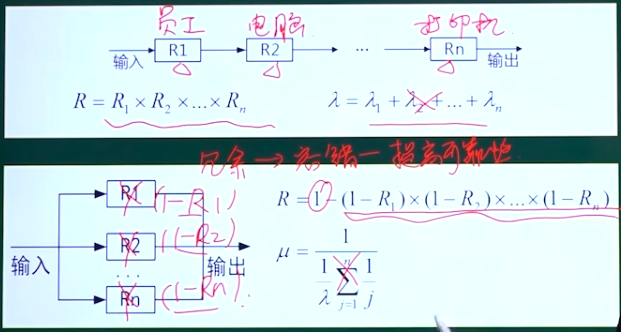 员工 电脑 打印机
输入 R1 R2 … Rn 输出
R = R₁ × R₂ × … × Rₙ λ = λ₁ + λ₂ + … + λₙ
冗余 → 容错 — 提高可靠性
R1 (1-R1) R = 1 - (1 - R₁) × (1 - R₂) × … × (1 - Rₙ)
输入 R2 (1-R2) 输出
…
Rn (1-Rn)
μ = 1 / ((1/λ) ∑_{j=1}^{n} (1/j))